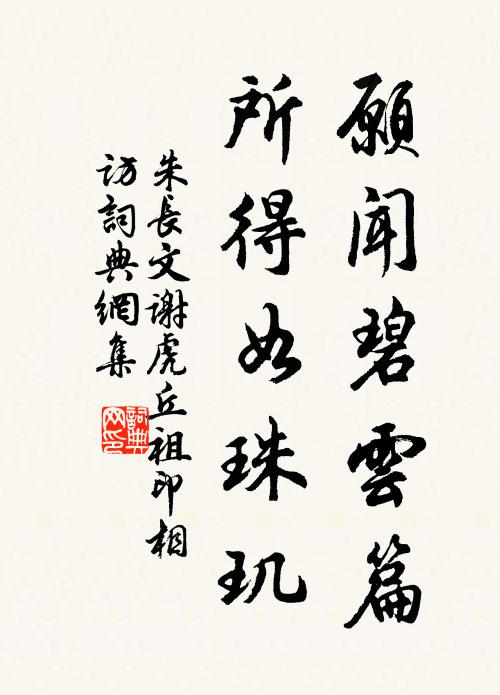 願聞碧雲篇
所得如珠玑
朱長文謝虎丘祖印相
訪詞典網集
詞典
网印